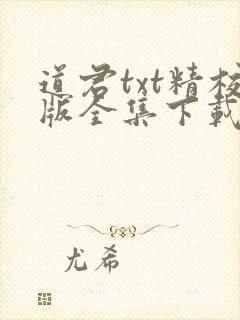 道君txt精校
版全集下载
尤希